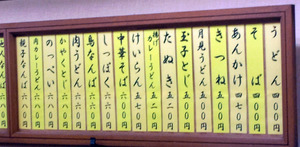 うどん 四〇〇円
そば 四〇〇円
あんかけ 四五〇円
きつね 五〇〇円
月見うどん 五〇〇円
玉子とじ 五二〇円
たぬき 五二〇円
カレーうどん 五二〇円
けいらん 五七〇円
中華そば 六〇〇円
しっぽく 六〇〇円
鳥なんば 六〇〇円
肉うどん 六〇〇円
かやくとじ 六六〇円
のっぺい 六八〇円
肉カレーうどん 六八〇円
親子なんば 六六〇円
他人なんば